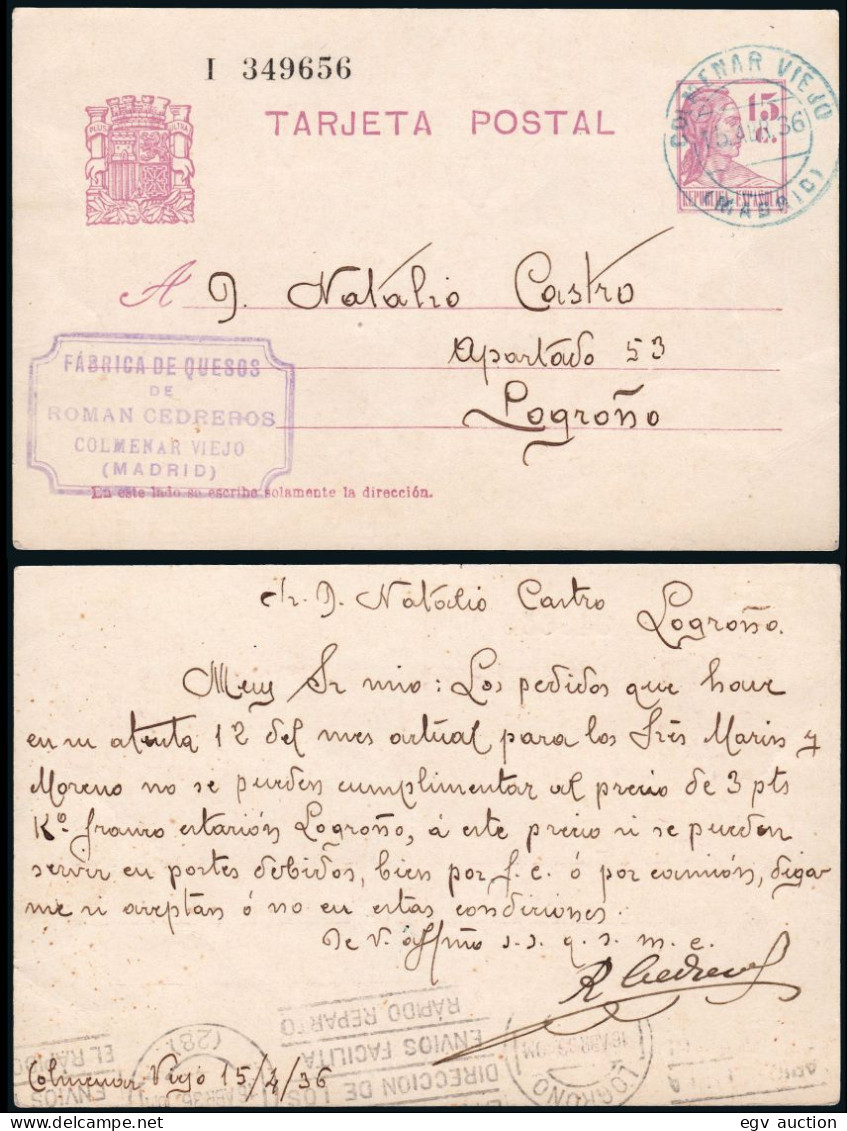 I 349656
TARJETA POSTAL
PLUS ULTRA
15 c.
REPUBLICA ESPAÑOLA
COLMENAR VIEJO
15 ABR 36
(MADRID)
A D. Natalio Castro
Apartado 53
Logroño
FÁBRICA DE QUESOS
DE
ROMAN CEDREROS
COLMENAR VIEJO
(MADRID)
En este lado se escribe solamente la dirección.
Sr. D. Natalio Castro
Logroño.
Muy Sr mio: Los pedidos que hace
en su atenta 12 del mes actual para los Srēs Marin y
Moreno no se pueden cumplimentar al precio de 3 pts
Kº. franco estación Logroño, á este precio si se pueden
servir en portes debidos, bien por f. c. ó por camión, diga
me si aceptan ó no en estas condiciones.
De V. affmo s. s. q. s. m. e.
R Cedreros
Colmenar Viejo 15/4/36
RÁPIDO REPARTO
ENVIOS FACILITA
DIRECCION DE LOS
EL RÁPIDO
ENVIOS
(28)
LOGROÑO
16 ABR 36